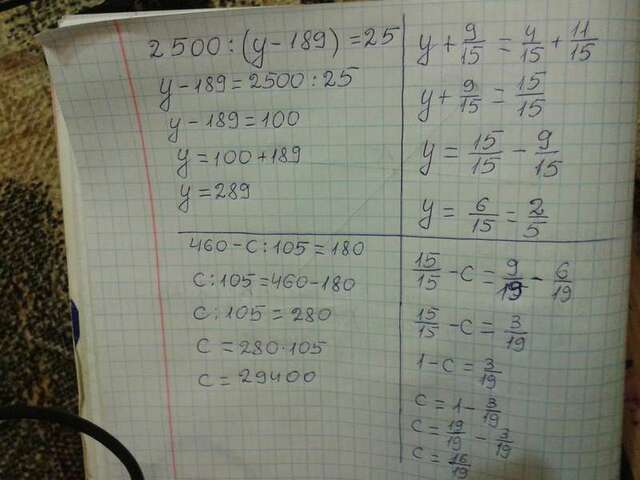 2500:(y-189)=25
y-189=2500:25
y-189=100
y=100+189
y=289
y+9/15=4/15+11/15
y+9/15=15/15
y=15/15-9/15
y=6/15=2/5
460-c:105=180
c:105=460-180
c:105=280
c=280·105
c=29400
15/15-c=9/19-6/19
15/15-c=3/19
1-c=3/19
c=1-3/19
c=19/19-3/19
c=16/19